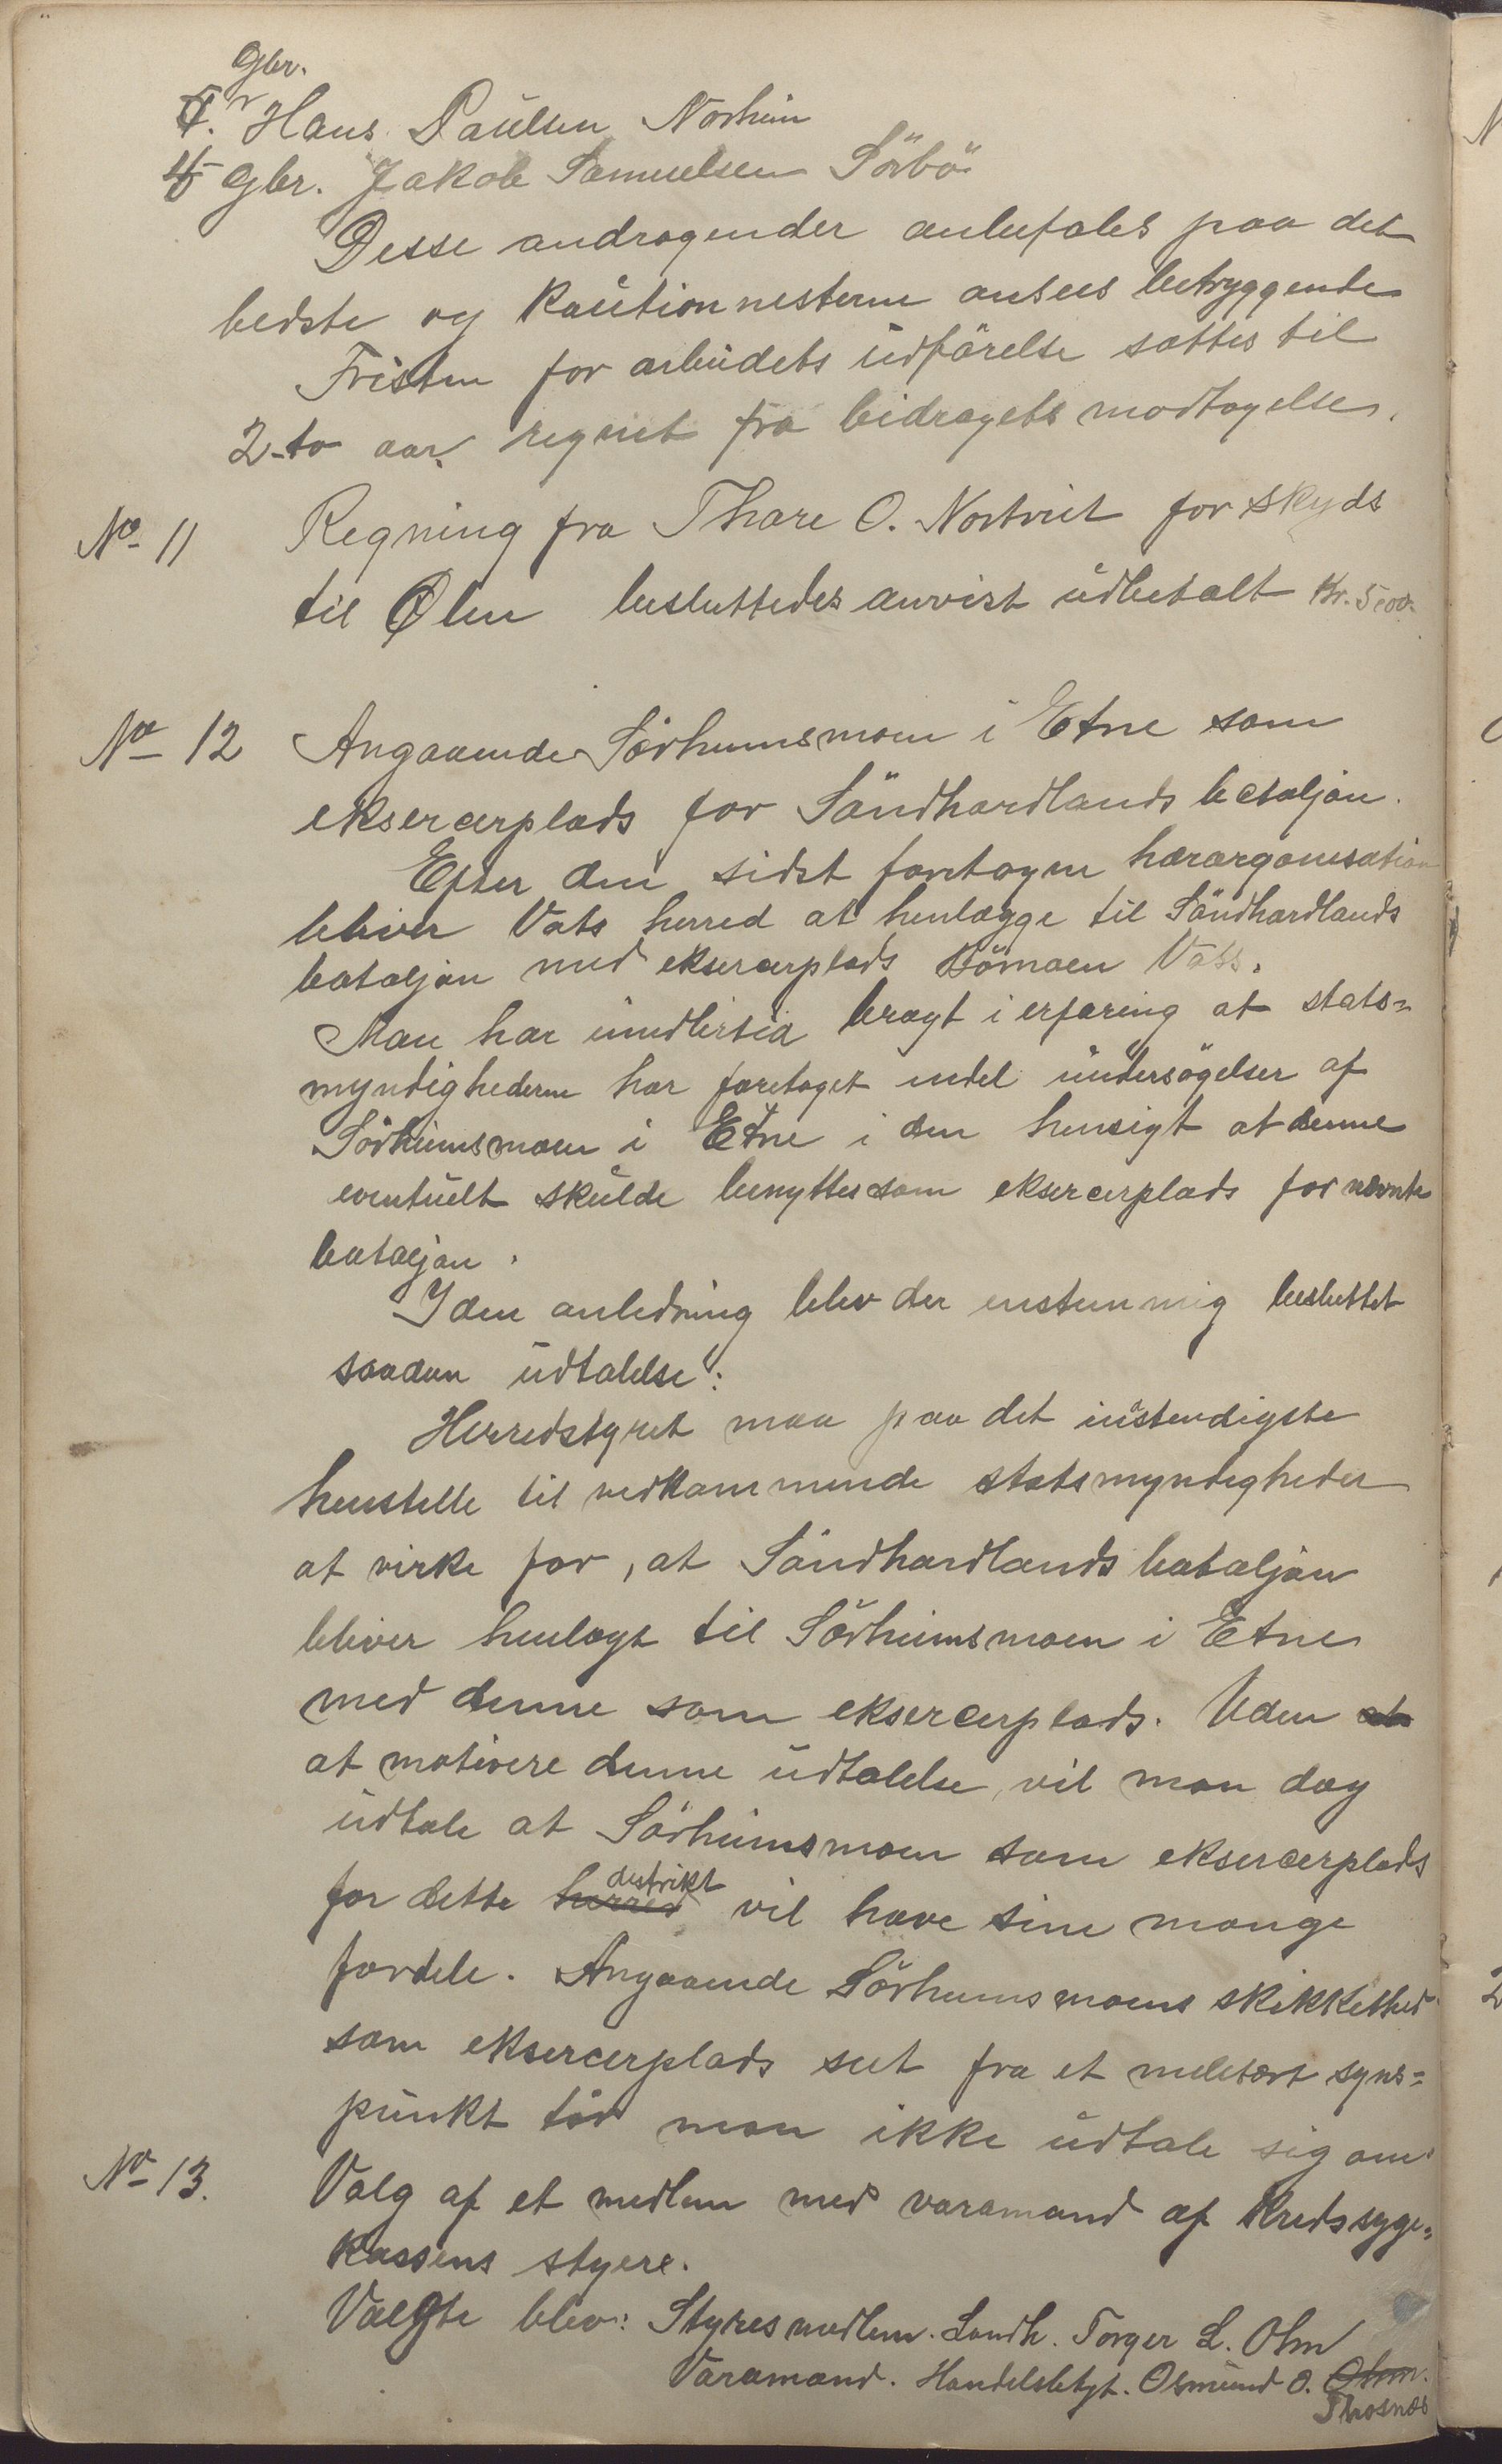 Gbr.
4. Hans Paulsen Norheim
5 Gbr. Jakob Samuelsen Sörbö
Desse andragender anbefales paa det
bedste og Kautionnisterne ansees betryggende
Fristen for arbeidets udförelse sættes til
2-to aar regnet fra bidragets modtagelse.
No 11 Regning fra Thore O. Nortveit for skyds
til Ølen besluttedes anvist udbetalt Kr. 5.00
No 12 Angaaende Sörheimsmoen i Etne som
eksercerplads for Söndhordlands bataljon.
Efter den sidst foretagne hærorganisation
bliver Vats herred at henlægge til Söndhordlands
bataljon med eksercerplads Bömoen Voss.
Man har imidlertid bragt i erfaring at stats=
myndighederne har foretaget endel undersögelser af
Sörheimsmoen i Etne i den hensigt at denne
eventuelt skulde benyttes som eksercerplads for nævnte
bataljon.
I den anledning blev der enstemmig besluttet
saadan udtalelse:
Herredstyret maa paa det instendigste
henstille til vedkommende statsmyndigheder
at virke for, at Söndhordlands bataljon
bliver henlagt til Sörheimsmoen i Etne
med denne som eksercerplads. Uden at
at motivere denne udtalelse, vil man dog
udtale at Sörheimsmoen som eksercerplads
distrikt
for dette herred vil have sine mange
fordele. Angaaende Sörheimsmoens skikkethed
som eksercerplads seet fra et militært syns=
punkt tör man ikke udtale sig om
No 13. Valg af et medlem med varamand af Kredssyge=
kassens styere.
Valgte blev: Styresmedlem. Landh. Torger L. Olen
Varamand. Handelsbetgt. Osmund O. Olen.
Thosnes